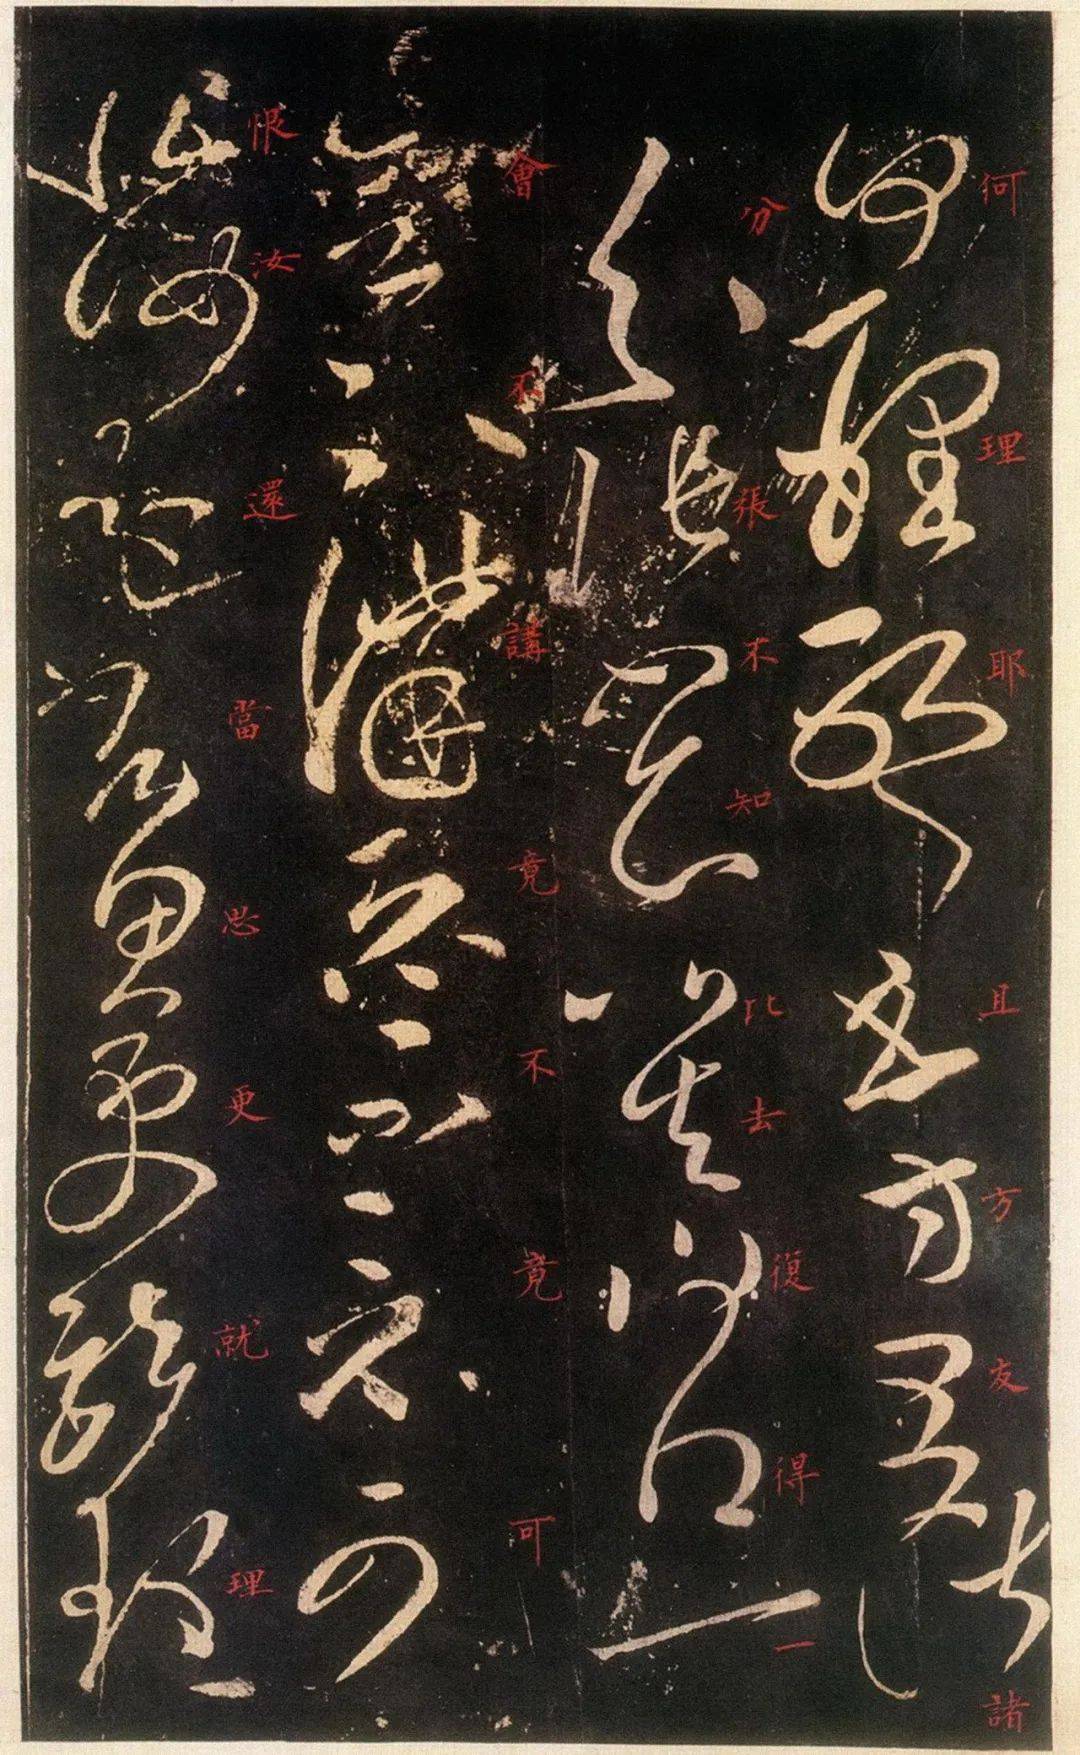 何理耶且方友諸
分張不知比去復得一
會不講竟不竟可
恨汝還當思更就理